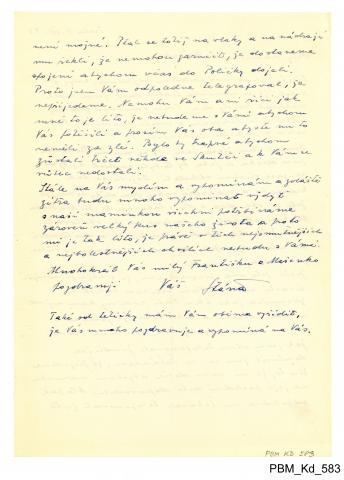 není možné. Ptal se totiž na vlaky a na nádraží
mu řekli, že nemohou garantit, že dostaneme
spojení abychom včas do Poličky dojeli.
Proto jsem Vám odpoledne telegrafoval, že
nepřijedeme. Nemohu Vám ani říci jak
mně to je líto, že nebudeme s Vámi abychom
Vás potěšili a prosím Vás oba abyste mi to
neměli za zlé. Bylo by hrozné abychom
zůstali trčeti někde ve Skutči a k Vám se
vůbec nedostali.
Stále na Vás myslím a vzpomínám a zvláště
zítra budu mnoho vzpomínat vždyť
s naší maminkou všichni pohřbíváme
zároveň velký kus našeho života a proto
mi je tak líto, že právě v těch nejsmutnějších
a nejbolestnějších chvílích nebudu s Vámi.
Mnohokrát Vás milý Františku a Mařenko
pozdravuji Váš Sláva
Také od tetičky mám Vám oběma vyřídit,
že Vás mnoho pozdravuje a vzpomíná na Vás.
PBM KD 583
PBM_Kd_583